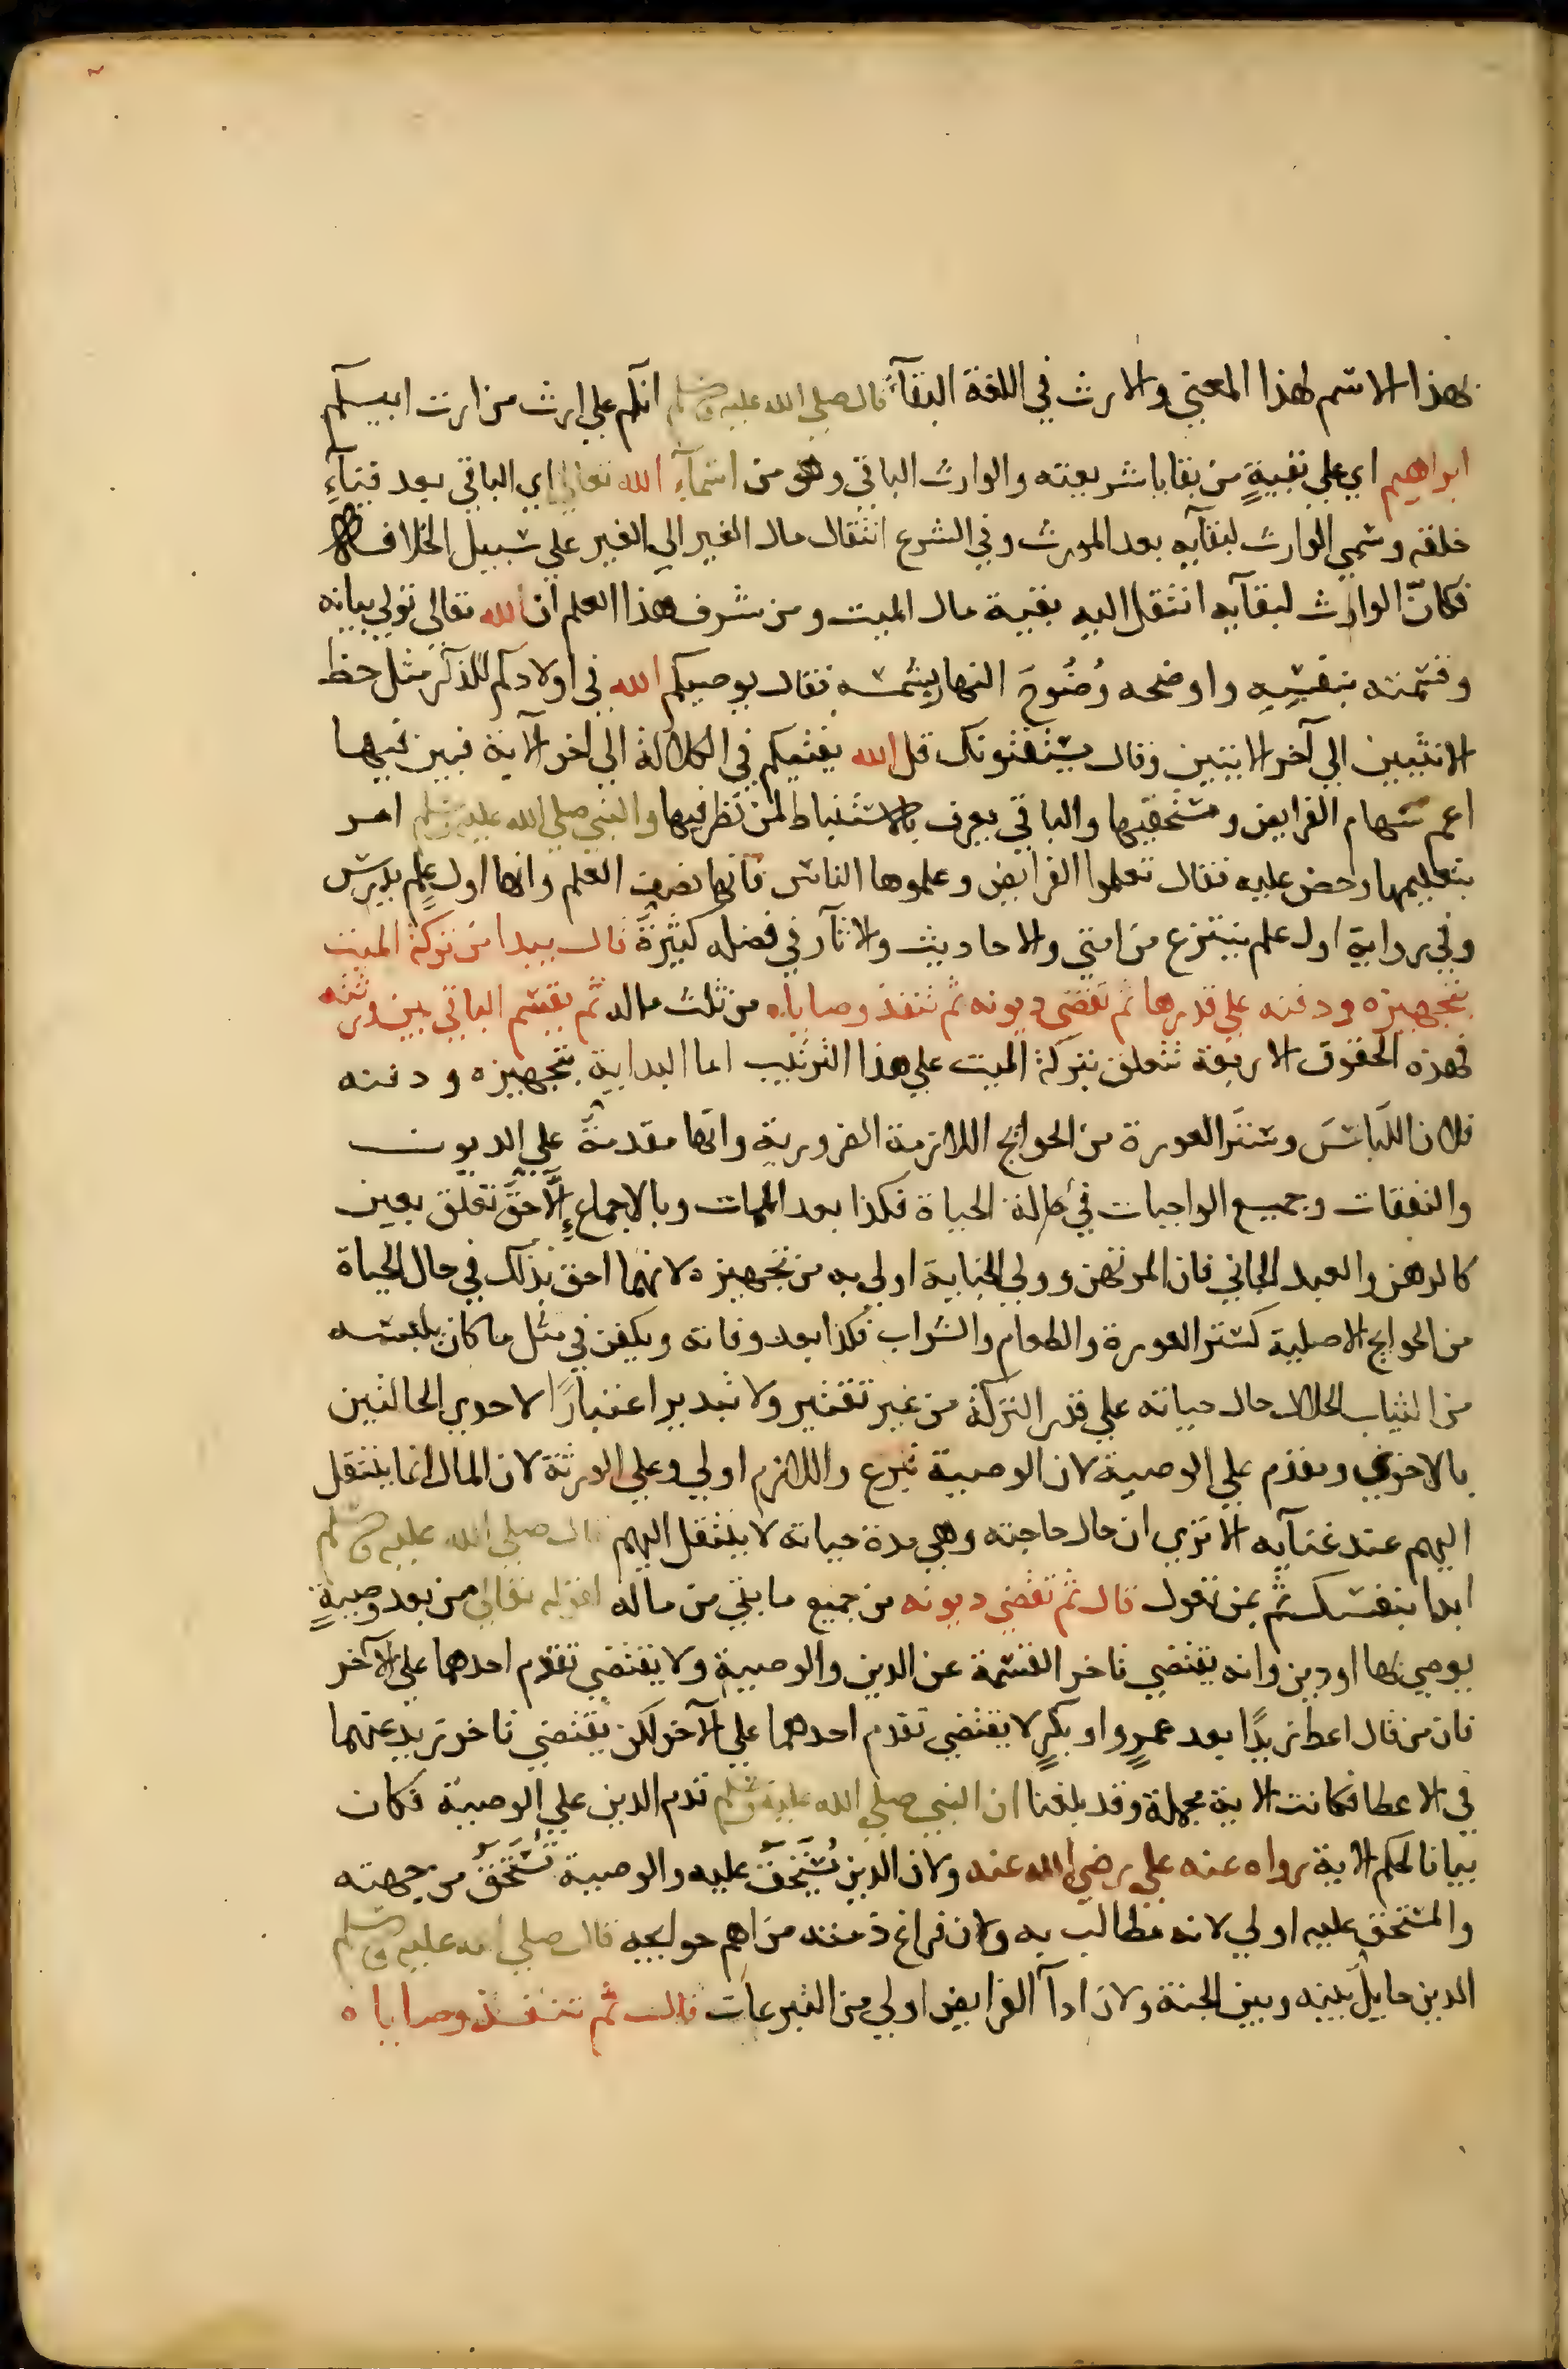 بهذا الاسم لهذا المعنى والارث في اللغة البقآء قال صلى الله عليه وسلم انكم على ارث من ارث ابيكم
ابراهيم اي على بقيةٍ من بقايا شريعته والوارث الباقي وهو من اسمآء الله تعالى اي الباقي بعد فنآء
خلقه وسمي الوارث لبقآيه بعد المورث وفي الشرع انتقال مال الغير الي الغير علي سبيل الخلافة
فكانّ الوارث لبقآيه انتقل اليه بقية مال الميت ومن شرف هذا العلم ان الله تعالى تولي بيانه
وقسمته بنفسِه واوضحه وُضُوحَ النهار بشمسه فقال يوصيكم الله في اولادكم للذكر مثل حظ
الانثيين الي آخر الايتين وقال يستفتونك قل الله يفتيكم في الكلالة الي اخر الآية فبين فيها
اعم سهام الفرايض ومستحقيها والباقي يعرف بالاستنباط لمن نظر فيها والنبي صلي الله عليه وسلم امر
بتعليمها وحض عليه فقال تعلموا الفرايض وعلموها الناس فانها نصف العلم وانها اول علمٍ يدرس
وفي رواية اول علم ينتزع من امتي والاحاديث والآثار في فضله كثيرةٌ قال يبدا من تركة الميت
بتجهيزه ودفنه علي قدرها ثم تقضي ديونه ثم تنفذ وصاياه من ثلث ماله ثم يقسم الباقي بين ورثته
فهذه الحقوق الاربعة تتعلق بتركة الميت علي هذا الترتيب اما البداية بتجهيزه ودفنه
فلان اللباسَ وسترَ العورة من الحوايج اللازمة الضرورية وانها مقدمةٌ علي الديون
والنفقات وجميع الواجبات في حالة الحياة فكذا بعد الممات وبالاجماع الّا حقٌّ تعلق بعين
كالرهن والعبد الجاني فان المرتهن وولي الجناية اولي به من تجهيزه لانهما احق بذلك في حال الحياة
من الحوايج الاصلية كستر العورة والطعام والشراب فكذا بعد وفاته ويكفن في مثل ما كان يلبسه
من الثياب الحلال حال حياته علي قدر التركة من غير تقتير ولا تبذير اعتبارًا لاحدي الحالتين
بالاخري ويقدم علي الوصية لان الوصية تبرع واللازم اولي وعلي الورثة لان المال انما ينتقل
اليهم عند غنآيه الا تري ان حال حاجته وهي مدة حياته لا ينتقل اليهم قال صلى الله عليه وسلم
ابدا بنفسك ثم بمن تعول قال ثم تقضي ديونه من جميع ما بقي من ماله لقوله تعالي من بعد وصيةٍ
يوصي بها او دين وانه يقتضي تاخر القسمة عن الدين والوصية ولا يقتضي تقدم احدهما علي الآخر
فان من قال اعط زيدًا بعد عمرٍو او بكرٍ لا يقتضي تقدم احدهما علي الآخر لكن يقتضي تاخر زيد عنهما
في الاعطا فكانت الاية مجملة وقد بلغنا ان النبي صلي الله عليه وسلم قدم الدين علي الوصية فكان
بيانا لحكم الاية رواه عنه علي رضي الله عنه ولان الدين يُستَحقُّ عليه والوصية تُستَحقُّ من جهته
والمستحق عليه اولي لانه مطالب به ولان فراغ ذمته من اهم حوايجه قال صلي الله عليه وسلم
الدين حايلٌ بينه وبين الجنة ولان ادآ الفرايض اولي من التبرعات قال ثم تنفذ وصاياه